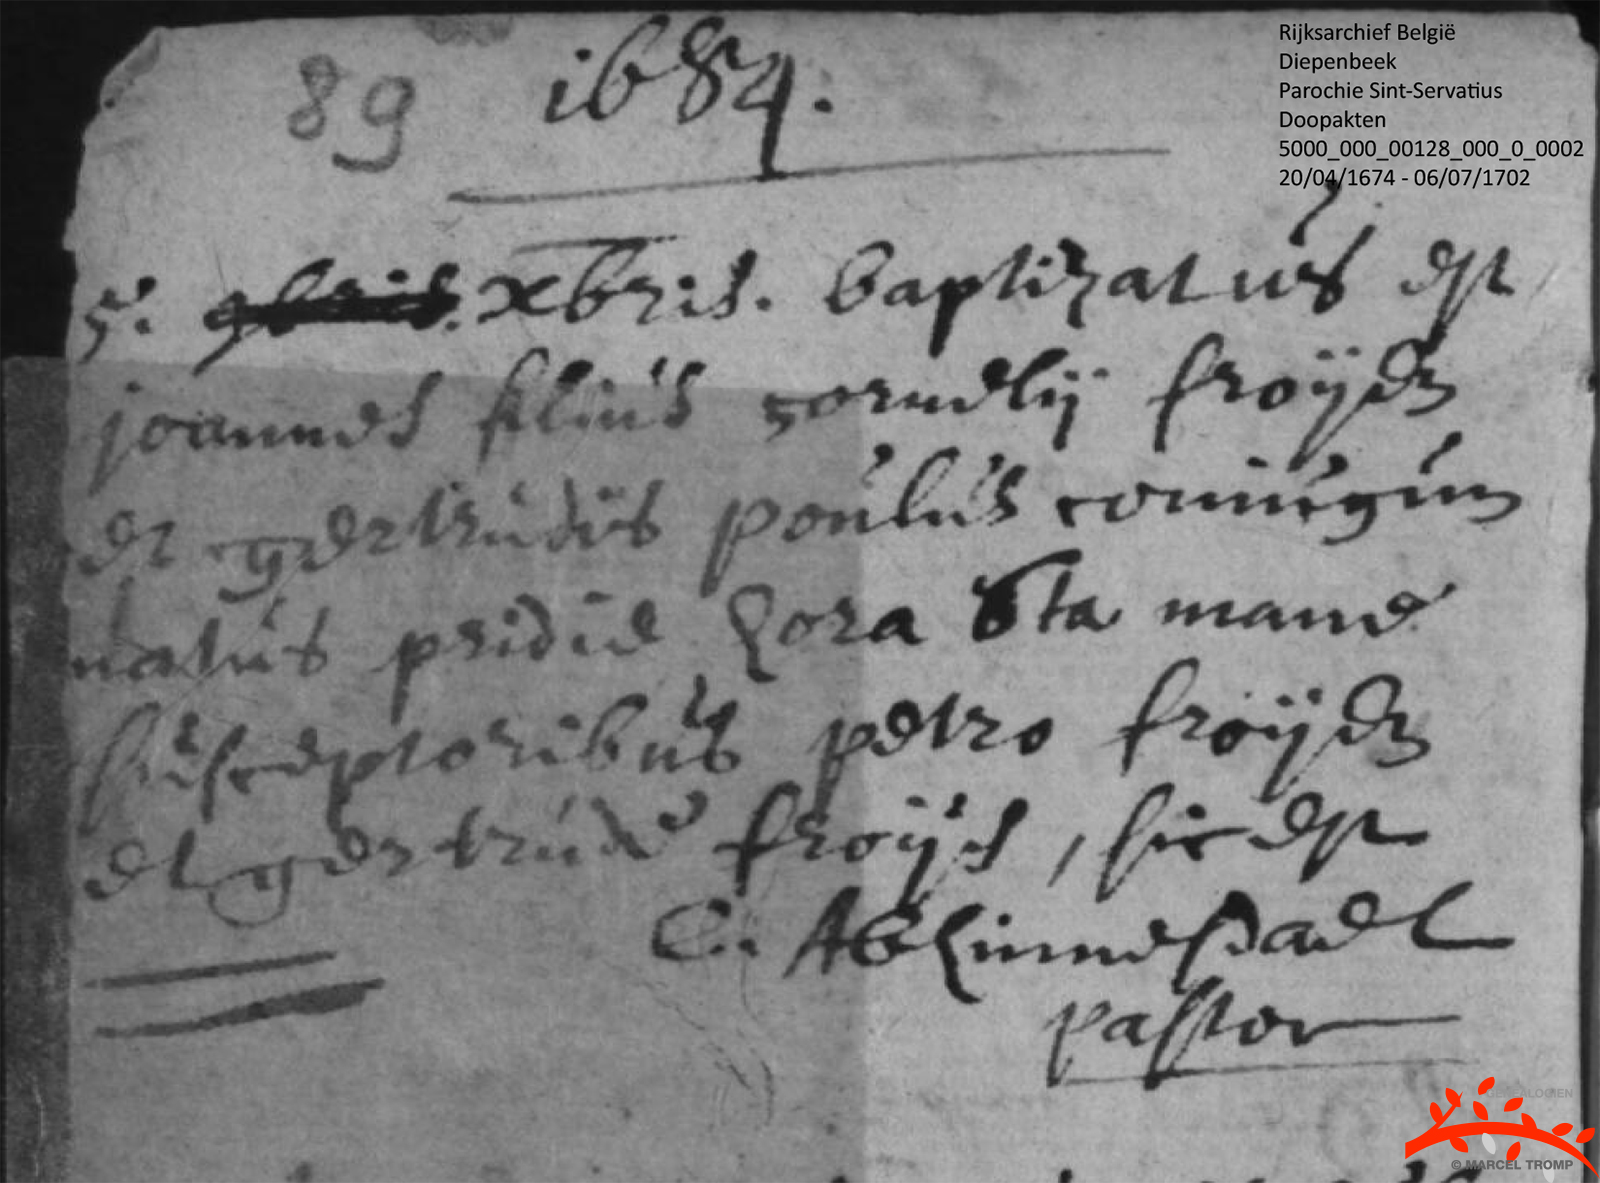 Rijksarchief België
Diepenbeek
Parochie Sint-Servatius
Doopakten
5000_000_00128_000_0_0002
20/04/1674 - 06/07/1702
89 1684.
5. 9bris. xbris. baptizatus est
joannes filius cornelij froijen
et gertrudis poulus coniugum
natus pridie hora 6ta mane
susceptoribus petro froijen
et gertrude froijs, sic est
pastor
GENEALOGIEN
© MARCEL TROMP